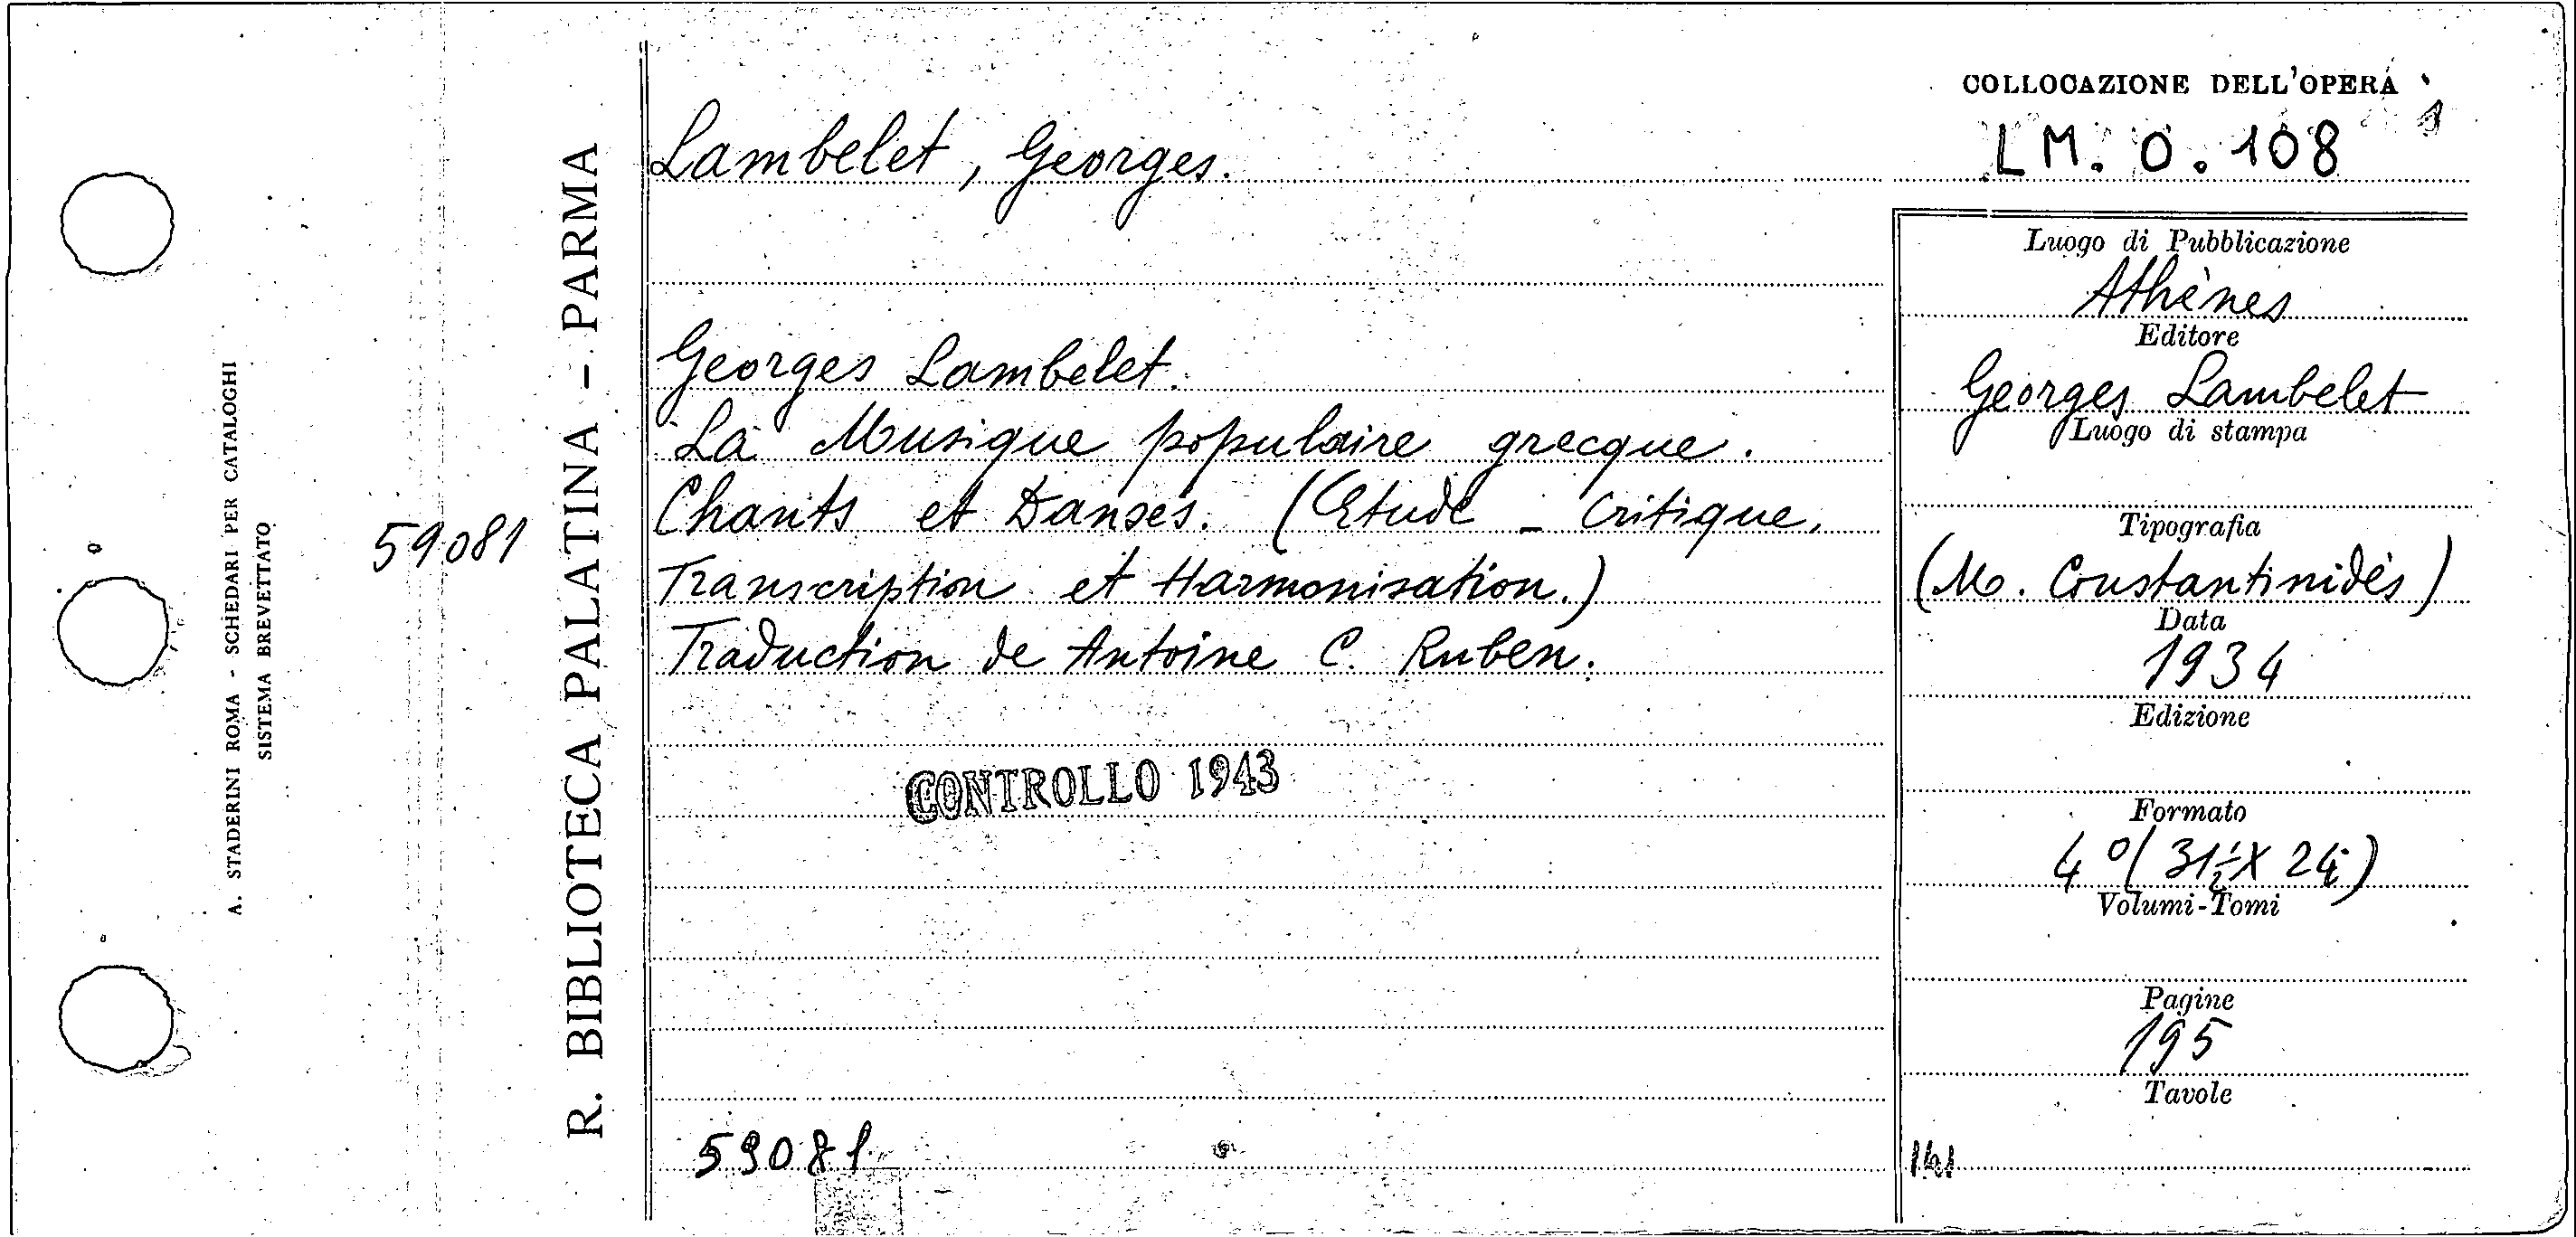 COLLOCAZIONE DELL'OPERA
LM. O. 108
Lambelet, Georges.
Georges Lambelet.
La Musique populaire grecque.
Chants et Danses. (Etude - Critique,
Transcription et Harmonisation.)
Traduction de Antoine C. Ruben.
CONTROLLO 1943
59081
Luogo di Pubblicazione
Athènes
Editore
Georges Lambelet
Luogo di stampa
Tipografia
(M. Constantinidès)
Data
1934
Edizione
Formato
4º (31½ X 24)
Volumi-Tomi
Pagine
195
Tavole
R. BIBLIOTECA PALATINA - PARMA
59081
A. STADERINI ROMA - SCHEDARI PER CATALOGHI
SISTEMA BREVETTATO